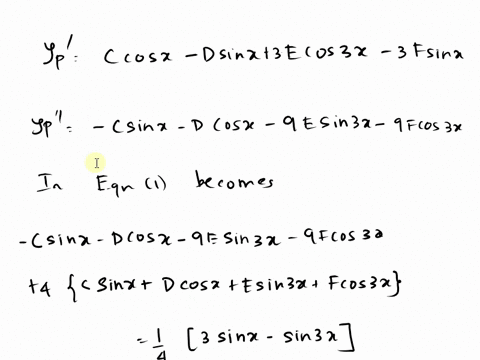 yp': C cosx - D sinx + 3E cos3x - 3F sinx
yp": - C sinx - D cosx - 9E sin3x - 9F cos3x
In Eqn (1) becomes
- C sinx - D cosx - 9E sin3x - 9F cos32
+4 {C sinx + D cosx + E sin3x + F cos3x}
= 1/4 [3 sinx - sin3x]